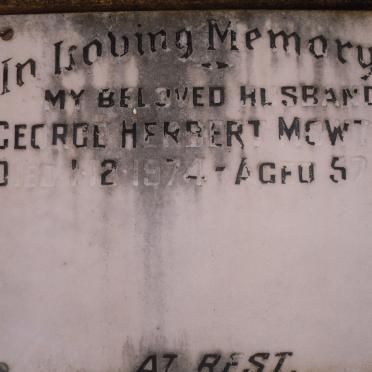 In Loving Memory
MY BELOVED HUSBAND
GEORGE HERBERT MOWT
DIED 1974 - AGED 57
AT REST.